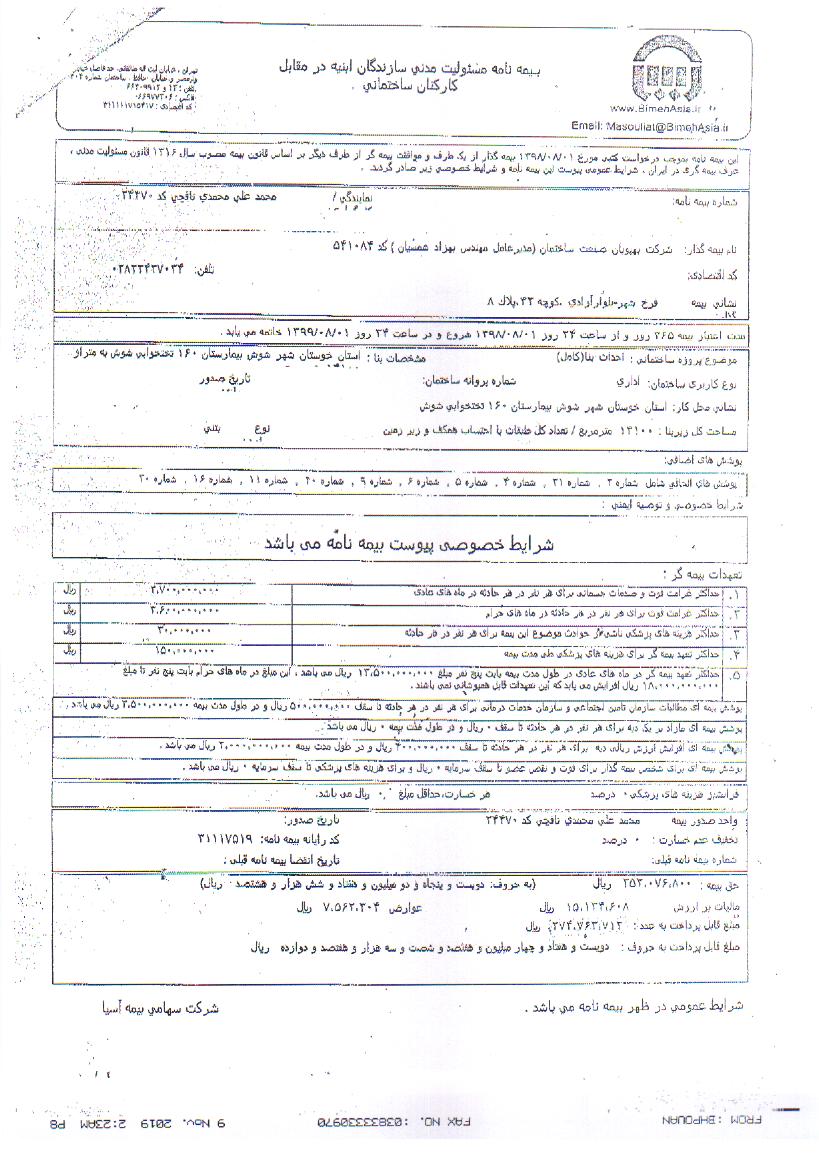 بیمه نامه مسئولیت مدنی سازندگان ابنیه در مقابل
کارکنان ساختمانی
تلفن: ۱۳ و ۶۶۴۰۹۹۱۲
فاکس: ۶۶۹۷۷۳۰۶
کد اقتصادی: ۳۱۱۱۱۷۱۵۴۱۷
www.BimehAsia.ir
Email: Masouliat@BimehAsia.ir
این بیمه نامه بموجب درخواست کتبی مورخ ۱۳۹۸/۰۸/۰۱ بیمه گذار از یک طرف و موافقت بیمه گر از طرف دیگر بر اساس قانون بیمه مصوب سال ۱۳۱۶ قانون مسئولیت مدنی ،
عرف بیمه گری در ایران ، شرایط عمومی پیوست این بیمه نامه و شرایط خصوصی زیر صادر گردید.
شماره بیمه نامه: نمایندگی / محمد علی محمدي نافچي کد ۲۴۴۷۰
نام بیمه گذار: شرکت بهپویان صنعت ساختمان (مدیرعامل مهندس بهزاد عمسیان ) کد ۵۴۱۰۸۴
کد اقتصادی: تلفن: ۰۳۸۳۳۴۳۷۰۳۴
نشانی بیمه فرخ شهر-بلوارآزادی ،کوچه ۴۳،پلاک ۸
مدت اعتبار بیمه ۳۶۵ روز و از ساعت ۲۴ روز ۱۳۹۸/۰۸/۰۱ شروع و در ساعت ۲۴ روز ۱۳۹۹/۰۸/۰۱ خاتمه می یابد .
موضوع پروژه ساختمانی : احداث بنا(کامل) مشخصات بنا : استان خوستان شهر شوش بیمارستان ۱۶۰ تختخوابی شوش به متراژ
نوع کاربری ساختمان: اداری شماره پروانه ساختمان: تاریخ صدور
نشانی محل کار: استان خوزستان شهر شوش بیمارستان ۱۶۰ تختخوابی شوش
مساحت کل زیربنا : ۱۳۱۰۰ مترمربع / تعداد کل طبقات با احتساب همکف و زیر زمین نوع بتنی
پوشش های اضافی:
پوشش های الحاقی شامل شماره ۲ , شماره ۳۱ , شماره ۴ , شماره ۵ , شماره ۶ , شماره ۹ , شماره ۴۰ , شماره ۱۱ , شماره ۱۶ , شماره ۳۰
شرایط خصوصی و توصیه ایمنی :
شرایط خصوصی پیوست بیمه نامه می باشد
تعهدات بیمه گر :
۱. حداکثر غرامت فوت و صدمات جسمانی برای هر نفر در هر حادثه در ماه های عادی ۲,۷۰۰,۰۰۰,۰۰۰ ریال
۲. حداکثر غرامت فوت برای هر نفر در هر حادثه در ماه های حرام ۳,۶۰۰,۰۰۰,۰۰۰ ریال
۳. حداکثر هزینه های پزشکی ناشی از حوادث موضوع این بیمه برای هر نفر در هر حادثه ۳۰,۰۰۰,۰۰۰ ریال
۴. حداکثر تعهد بیمه گر برای هزینه های پزشکی طی مدت بیمه ۱۵۰,۰۰۰,۰۰۰ ریال
۵. حداکثر تعهد بیمه گر در ماه های عادی در طول مدت بیمه بابت پنج نفر مبلغ ۱۳,۵۰۰,۰۰۰,۰۰۰ ریال می باشد , این مبلغ در ماه های حرام بابت پنج نفر تا مبلغ
۱۸,۰۰۰,۰۰۰,۰۰۰ ریال افزایش می یابد که این تعهدات قابل همپوشانی نمی باشند .
پوشش بیمه ای مطالبات سازمان تامین اجتماعی و سازمان خدمات درمانی برای هر نفر در هر حادثه تا سقف ۵۰۰,۰۰۰,۰۰۰ ریال و در طول مدت بیمه ۲,۵۰۰,۰۰۰,۰۰۰ ریال می باشد .
پوشش بیمه ای مازاد بر یک دیه برای هر نفر در هر حادثه تا سقف ۰ ریال و در طول مدت بیمه ۰ ریال می باشد .
پوشش بیمه ای افزایش ارزش ریالی دیه برای هر نفر در هر حادثه تا سقف ۴۰۰,۰۰۰,۰۰۰ ریال و در طول مدت بیمه ۲,۰۰۰,۰۰۰,۰۰۰ ریال می باشد .
پوشش بیمه ای برای شخص بیمه گذار برای فوت و نقص عضو تا سقف سرمایه ۰ ریال و برای هزینه های پزشکی تا سقف سرمایه ۰ ریال می باشد .
فرانشیز هزینه های پزشکی ۰ درصد هر خسارت،حداقل مبلغ ۰ ریال می باشد.
واحد صدور بیمه محمد علی محمدي نافچي کد ۲۴۴۷۰ تاریخ صدور:
تخفیف عدم خسارت : ۰ درصد کد رایانه بیمه نامه: ۳۱۱۱۷۵۱۹
شماره بیمه نامه قبلی: تاریخ انقضا بیمه نامه قبلی :
حق بیمه : ۲۵۲,۰۷۶,۸۰۰ ریال (به حروف: دویست و پنجاه و دو میلیون و هفتاد و شش هزار و هشتصد ریال)
مالیات بر ارزش ۱۵,۱۲۴,۶۰۸ ریال عوارض ۷,۵۶۲,۳۰۴ ریال
مبلغ قابل پرداخت به عدد: ۲۷۴,۷۶۳,۷۱۲ ریال
مبلغ قابل پرداخت به حروف : دویست و هفتاد و چهار میلیون و هفتصد و شصت و سه هزار و هفتصد و دوازده ریال
شرایط عمومی در ظهر بیمه نامه می باشد . شرکت سهامي بیمه آسیا
FROM :BHPOUAN FAX NO. :03833330970 9 Nov. 2019 2:23AM P8